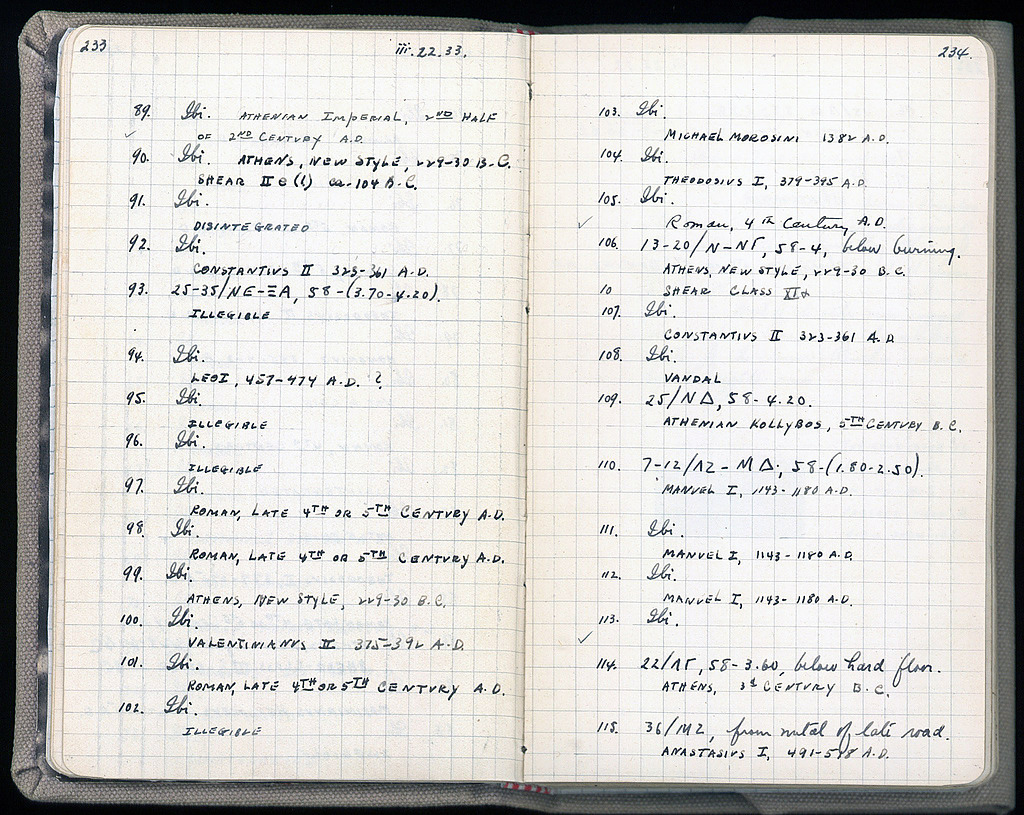 233
iii.22.33.
89. Ibi. ATHENIAN IMPERIAL, 2ND HALF
OF 2ND CENTURY A.D.
90. Ibi. ATHENS, NEW STYLE, 229-30 B.C.
SHEAR II e (1) ca. 104 B.C.
91. Ibi.
DISINTEGRATED
92. Ibi.
CONSTANTIVS II 323-361 A.D.
93. 25-35/NE-ΞA, 58-(3.70-4.20).
ILLEGIBLE
94. Ibi.
LEO I, 457-474 A.D. ?
95. Ibi.
ILLEGIBLE
96. Ibi.
ILLEGIBLE
97. Ibi.
ROMAN, LATE 4TH OR 5TH CENTURY A.D.
98. Ibi.
ROMAN, LATE 4TH OR 5TH CENTURY A.D.
99. Ibi.
ATHENS, NEW STYLE, 229-30 B.C.
100. Ibi.
VALENTINIANVS II 375-392 A.D.
101. Ibi.
ROMAN, LATE 4TH OR 5TH CENTURY A.D.
102. Ibi.
ILLEGIBLE
234.
103. Ibi.
MICHAEL MOROSINI 1382 A.D.
104. Ibi.
THEODOSIVS I, 379-395 A.D.
105. Ibi.
✓ Roman, 4th Century, A.D.
106. 13-20/N-NΓ, 58-4, below burning.
ATHENS, NEW STYLE, 229-30 B.C.
10 SHEAR CLASS XI
107. Ibi.
CONSTANTIVS II 323-361 A.D.
108. Ibi.
VANDAL
109. 25/NΔ, 58-4.20.
ATHENIAN KOLLYBOS, 5TH CENTURY B.C.
110. 7-12/ΛZ-MΔ; 58-(1.80-2.50).
MANVEL I, 1143-1180 A.D.
111. Ibi.
MANVEL I, 1143-1180 A.D.
112. Ibi.
MANVEL I, 1143-1180 A.D.
113. Ibi.
✓
114. 22/ΛΓ, 58-3.60, below hard floor.
ATHENS, 3d CENTURY B.C.
115. 36/MZ, from metal of late road.
ANASTASIVS I, 491-518 A.D.